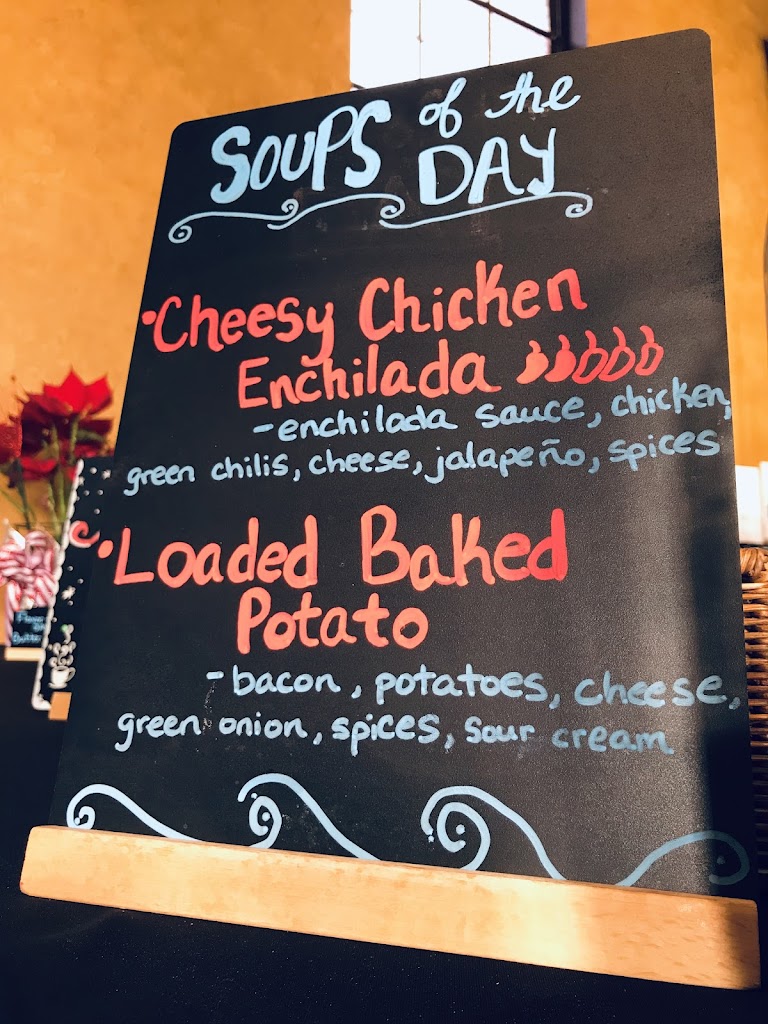 SOUPS of the DAY
• Cheesy Chicken
Enchilada
- enchilada sauce, chicken,
green chilis, cheese, jalapeño, spices
• Loaded Baked
Potato
- bacon, potatoes, cheese,
green onion, spices, sour cream